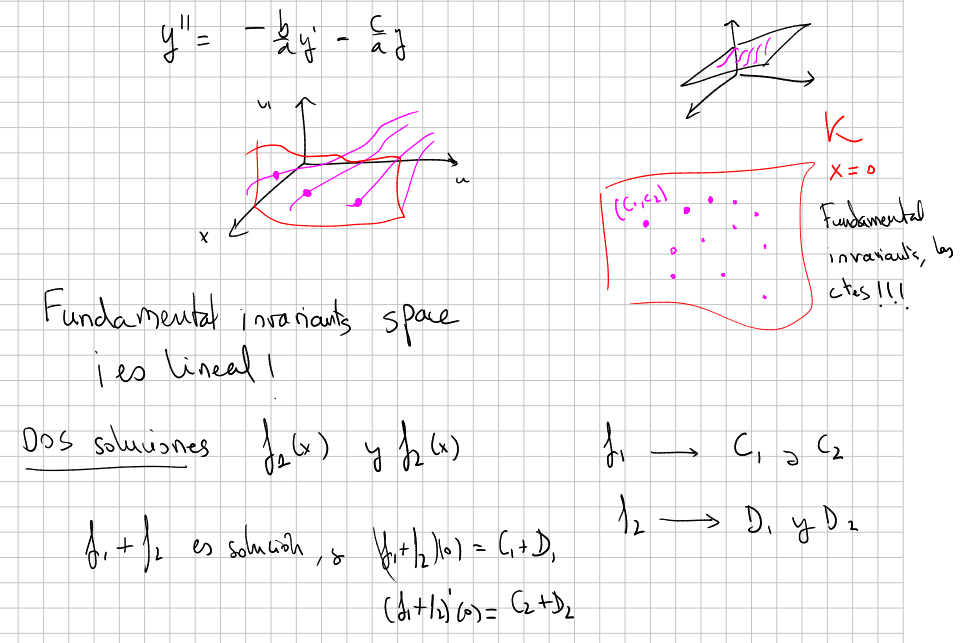 y'' = - b/a y' - c/a y
u₁
u
x
K
x = 0
(C₁, C₂)
Fundamental
invariants, las
ctes!!!
Fundamental invariants space
¡es lineal!
Dos soluciones f₁(x) y f₂(x)
f₁ → C₁ y C₂
f₂ → D₁ y D₂
f₁ + f₂ es solución, y (f₁+f₂)(0) = C₁+D₁
(f₁+f₂)'(0) = C₂+D₂